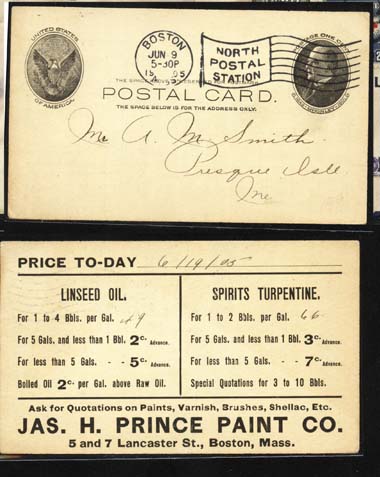 UNITED STATES
OF AMERICA
BOSTON
JUN 9
5-30P
1905
NORTH
POSTAL
STATION
POSTAL CARD.
THE SPACE BELOW IS FOR THE ADDRESS ONLY.
Mr A. M. Smith.
Presque Isle
Me
PRICE TO-DAY 6/19/05
LINSEED OIL.
For 1 to 4 Bbls. per Gal. 49
For 5 Gals. and less than 1 Bbl. 2c. Advance.
For less than 5 Gals. - - 5c. Advance.
Boiled Oil 2c. per Gal. above Raw Oil.
SPIRITS TURPENTINE.
For 1 to 2 Bbls. per Gal. 66
For 5 Gals. and less than 1 Bbl. 3c. Advance.
For less than 5 Gals. - - 7c. Advance.
Special Quotations for 3 to 10 Bbls.
Ask for Quotations on Paints, Varnish, Brushes, Shellac, Etc.
JAS. H. PRINCE PAINT CO.
5 and 7 Lancaster St., Boston, Mass.